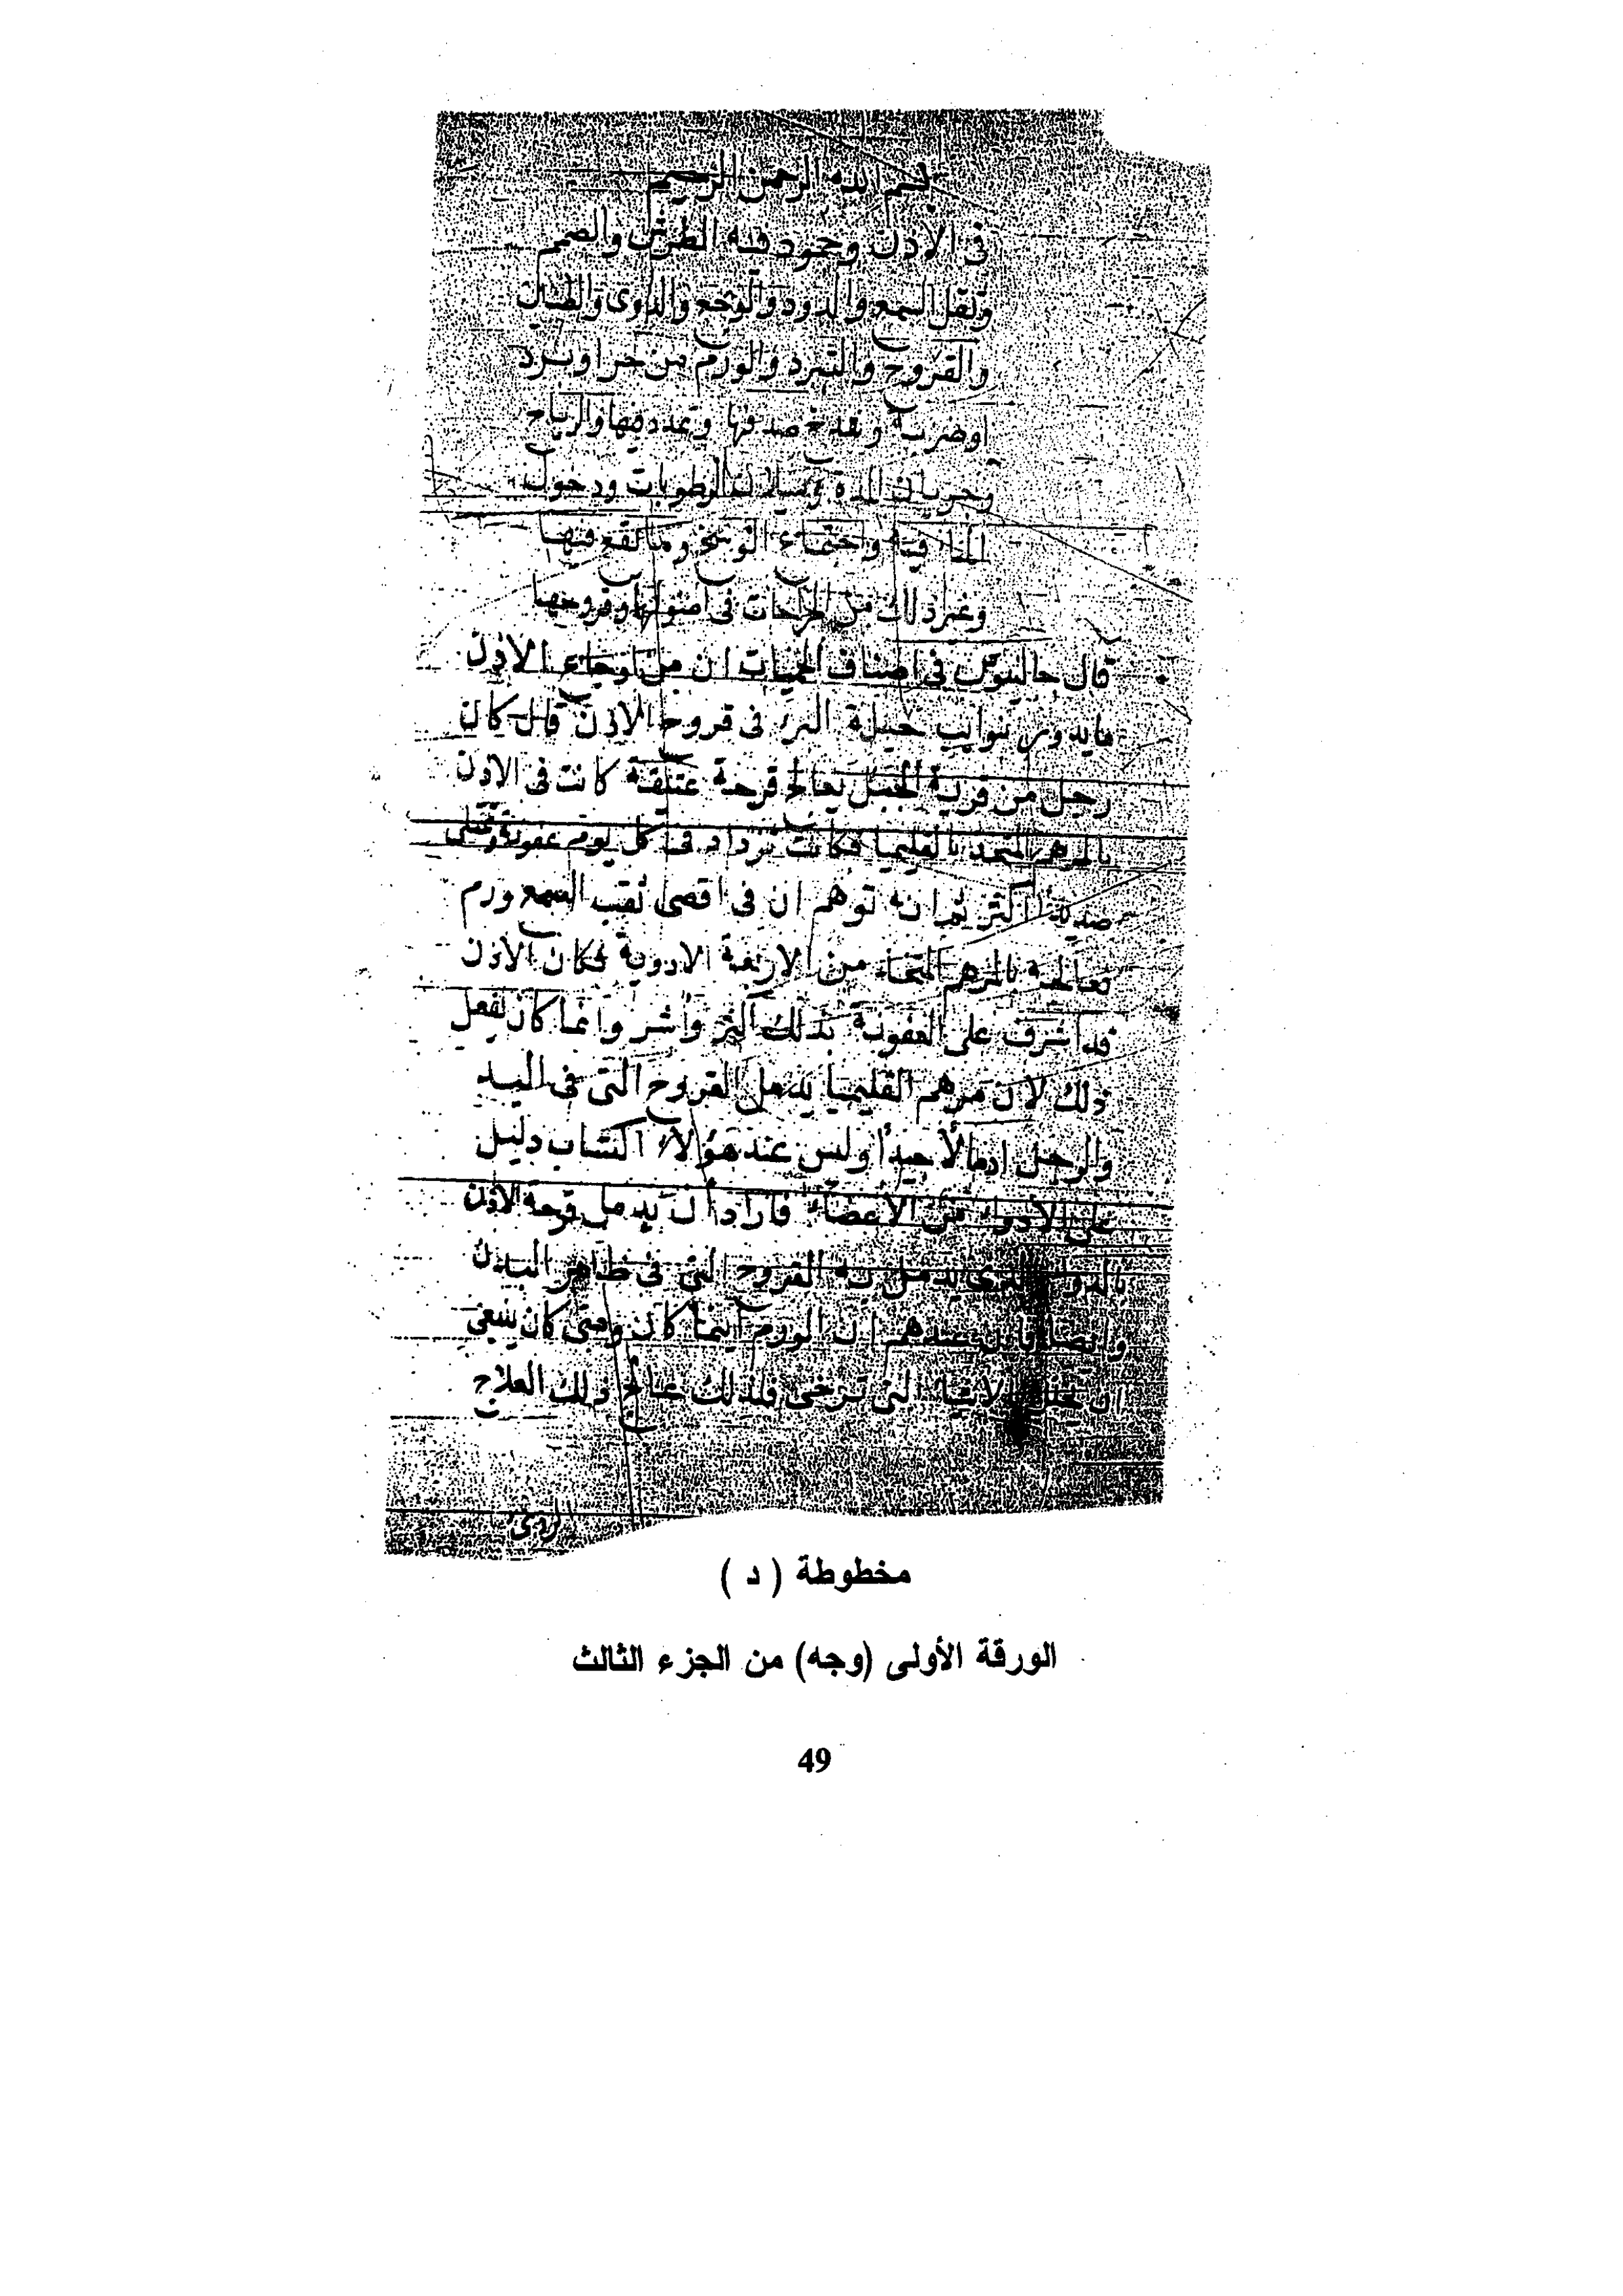 بسم الله الرحمن الرحيم
في الاذن وجمود فيه الطرش والصمم
وثقل السمع والدود والوجع والدوى والطنين
والقروح والتبرد والورم من حر او برد
او ضربة و صدفها وتمدد فيها والرياح
وجريان المدة وسيلان الرطوبات ودخول
الما فيه واجتماع الوسخ وما يقع فيها
وغير ذلك من الجراحات في اصولها وقروحها
قال جالينوس في اصناف الحميات ان من اوجاع الاذن
ما يدور بنوايب حيلة البرء في قروح الاذن قال كان
رجل من قرية الجبل يعالج قرحة عتيقة كانت في الاذن
بالمرهم المتخذ بالقليميا فكانت تزداد في كل يوم عفونة
صديدا اكثر ثم انه توهم ان في اقصى ثقب السمع ورم
فعالجه بالمرهم المتخذ من الاربعة الادوية فكان الاذن
قد اشرف على العفونة بذلك اكثر واشر وانما كان يفعل
ذلك لان مرهم القليميا يدمل القروح التي في اليد
والرجل ادمالا جيدا وليس عند هؤلاء اكتساب دليل
على الادواء من الاعضاء فاراد ان يدمل قرحة الاذن
بالدواء الذي يدمل به القروح التي في ظاهر البدن
وايضا فان عندهم ان الورم اينما كان ومتى كان ينبغي
ان الاشياء التي ترخى فلذلك عالج ذلك العلاج
مخطوطة ( د )
الورقة الأولى (وجه) من الجزء الثالث
49